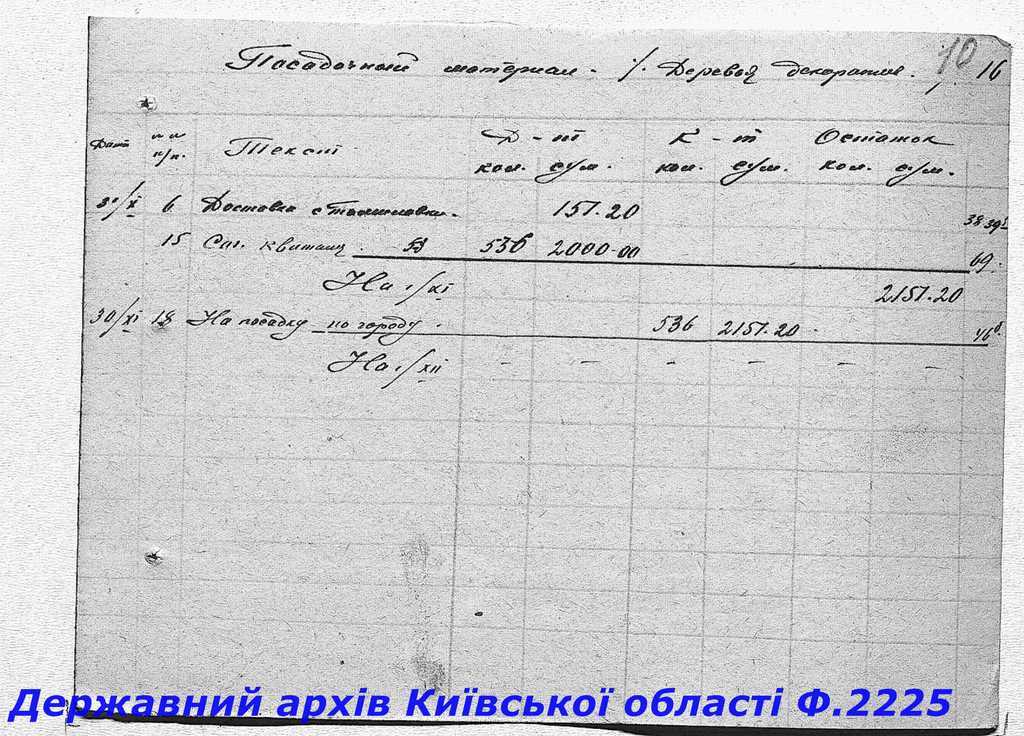 10
Посадочный материал. /. Деревья декоратив. 16
Дата п/п. Текст Д-т К-т Остаток
кол. сум. кол. сум. кол. сум.
31/X 6 Доставка с 151.20 38-39
15 Сог. квитанц. 53 536 2000-00 69.
На 1/XI 2151.20
30/XI 18 На посадку по городу. 536 2151.20. 46
На 1/XII – – – – – –
Державний архів Київської області Ф.2225